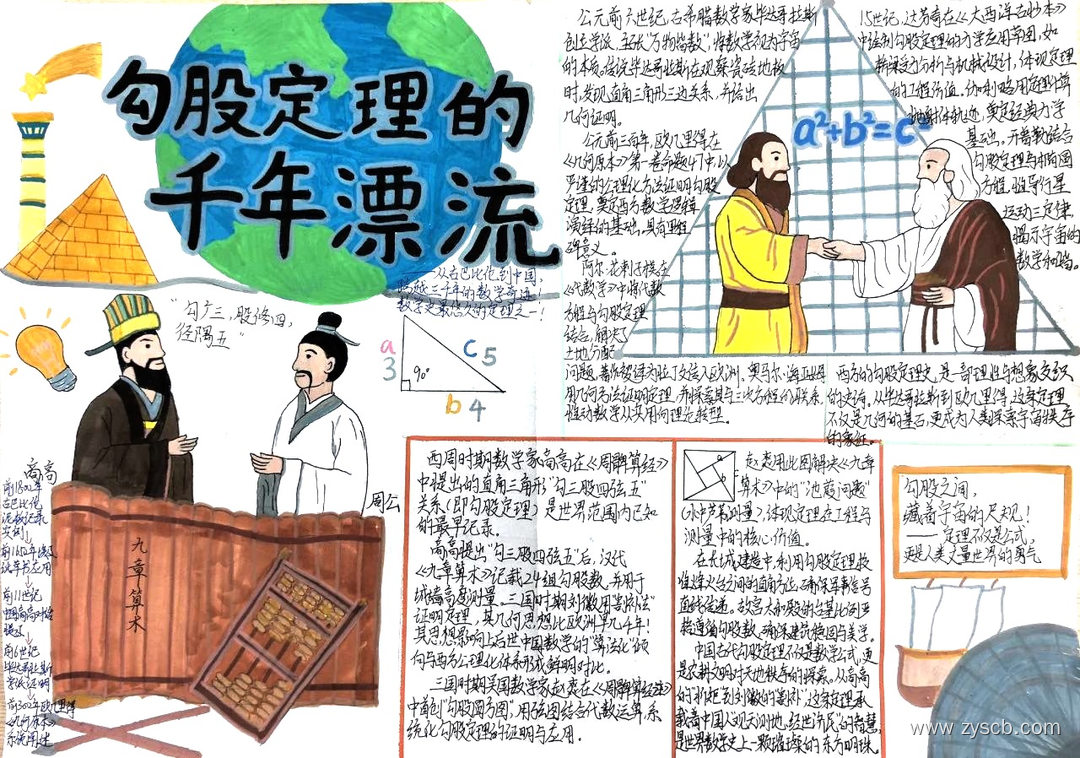 勾股定理的
千年漂流
——从古巴比伦到中国,
跨越三千年的数学奇迹
数学史最悠久的定理之一!
"勾广三,股修四,
径隅五"
a
3
c
5
90°
b
4
商高
周公
九章算术
前1800年
古巴比伦
泥板记录
实例
前11世纪
中国商高对话
提及
前6世纪
毕达哥拉斯
学派证明
前300年欧几里得
《几何原本》
系统阐述
公元前六世纪,古希腊数学家毕达哥拉斯
创立学派,主张"万物皆数",将数学视为宇宙
的本质。传说毕达哥拉斯在观察瓷砖地板
时,发现直角三角形三边关系,并给出
几何证明。
公元前三百年,欧几里得在
《几何原本》第一卷命题47中,以
严谨的公理化方法证明勾股
定理,奠定西方数学逻辑
演绎的基础,具有里程
碑意义。
阿尔·花剌子模在
《代数学》中将代数
方程与勾股定理
结合,解决了
土地分配
问题,著作被译为拉丁文传入欧洲。奥马尔·海亚姆
用几何方法证明定理,并探索其与三次方程的联系,
推动数学从实用向理论转型。
15世纪,达芬奇在《大西洋古抄本》
中绘制勾股定理的力学应用草图,如
桥梁受力分析与机械设计,体现定理
的工程价值。伽利略用定理计算
抛射体轨迹,奠定经典力学
基础。开普勒结合
勾股定理与椭圆
方程,推导行星
运动三定律,
揭示宇宙的
数学和谐。
a²+b²=c²
西方的勾股定理史,是一部理性与想象交织
的史诗。从毕达哥拉斯到欧几里得,这条定理
不仅是几何的基石,更成为人类探索宇宙秩序
的象征。
西周时期数学家商高在《周髀算经》
中提出的直角三角形"勾三股四弦五"
关系(即勾股定理)是世界范围内已知
的最早记录。
商高提出"勾三股四弦五"后,汉代
《九章算术》记载24组勾股数,并用于
城墙高度测量。三国时期刘徽用"割补法"
证明定理,其几何思想比欧洲早几千年!
其思想影响后世中国数学的"算法化"倾
向与西方公理化体系形成鲜明对比。
三国时期吴国数学家赵爽在《周髀算经注》
中首创"勾股圆方图",用弦图结合代数运算,系
统化勾股定理的证明与应用。
赵爽用此图解决《九章
算术》中的"池葭问题"
(水中芦苇测量),体现定理在工程与
测量中的核心价值。
在长城建造中,利用勾股定理校
准烽火台之间的直角方位,确保军事信号
直线传递。故宫太和殿的台基比例亚
接遵循勾股数,确保建筑稳固与美学。
中国古代勾股定理不仅是数学公式,更
是农耕文明对天地秩序的探索。从商高
的"折矩"到刘徽的"割补",这条定理承
载着中国人"观天测地,经世济民"的智慧,
是世界数学史上一颗璀璨的东方明珠。
勾股之间,
藏着宇宙的尺规!
——定理不仅是公式,
更是人类丈量世界的勇气
www.zyscb.com